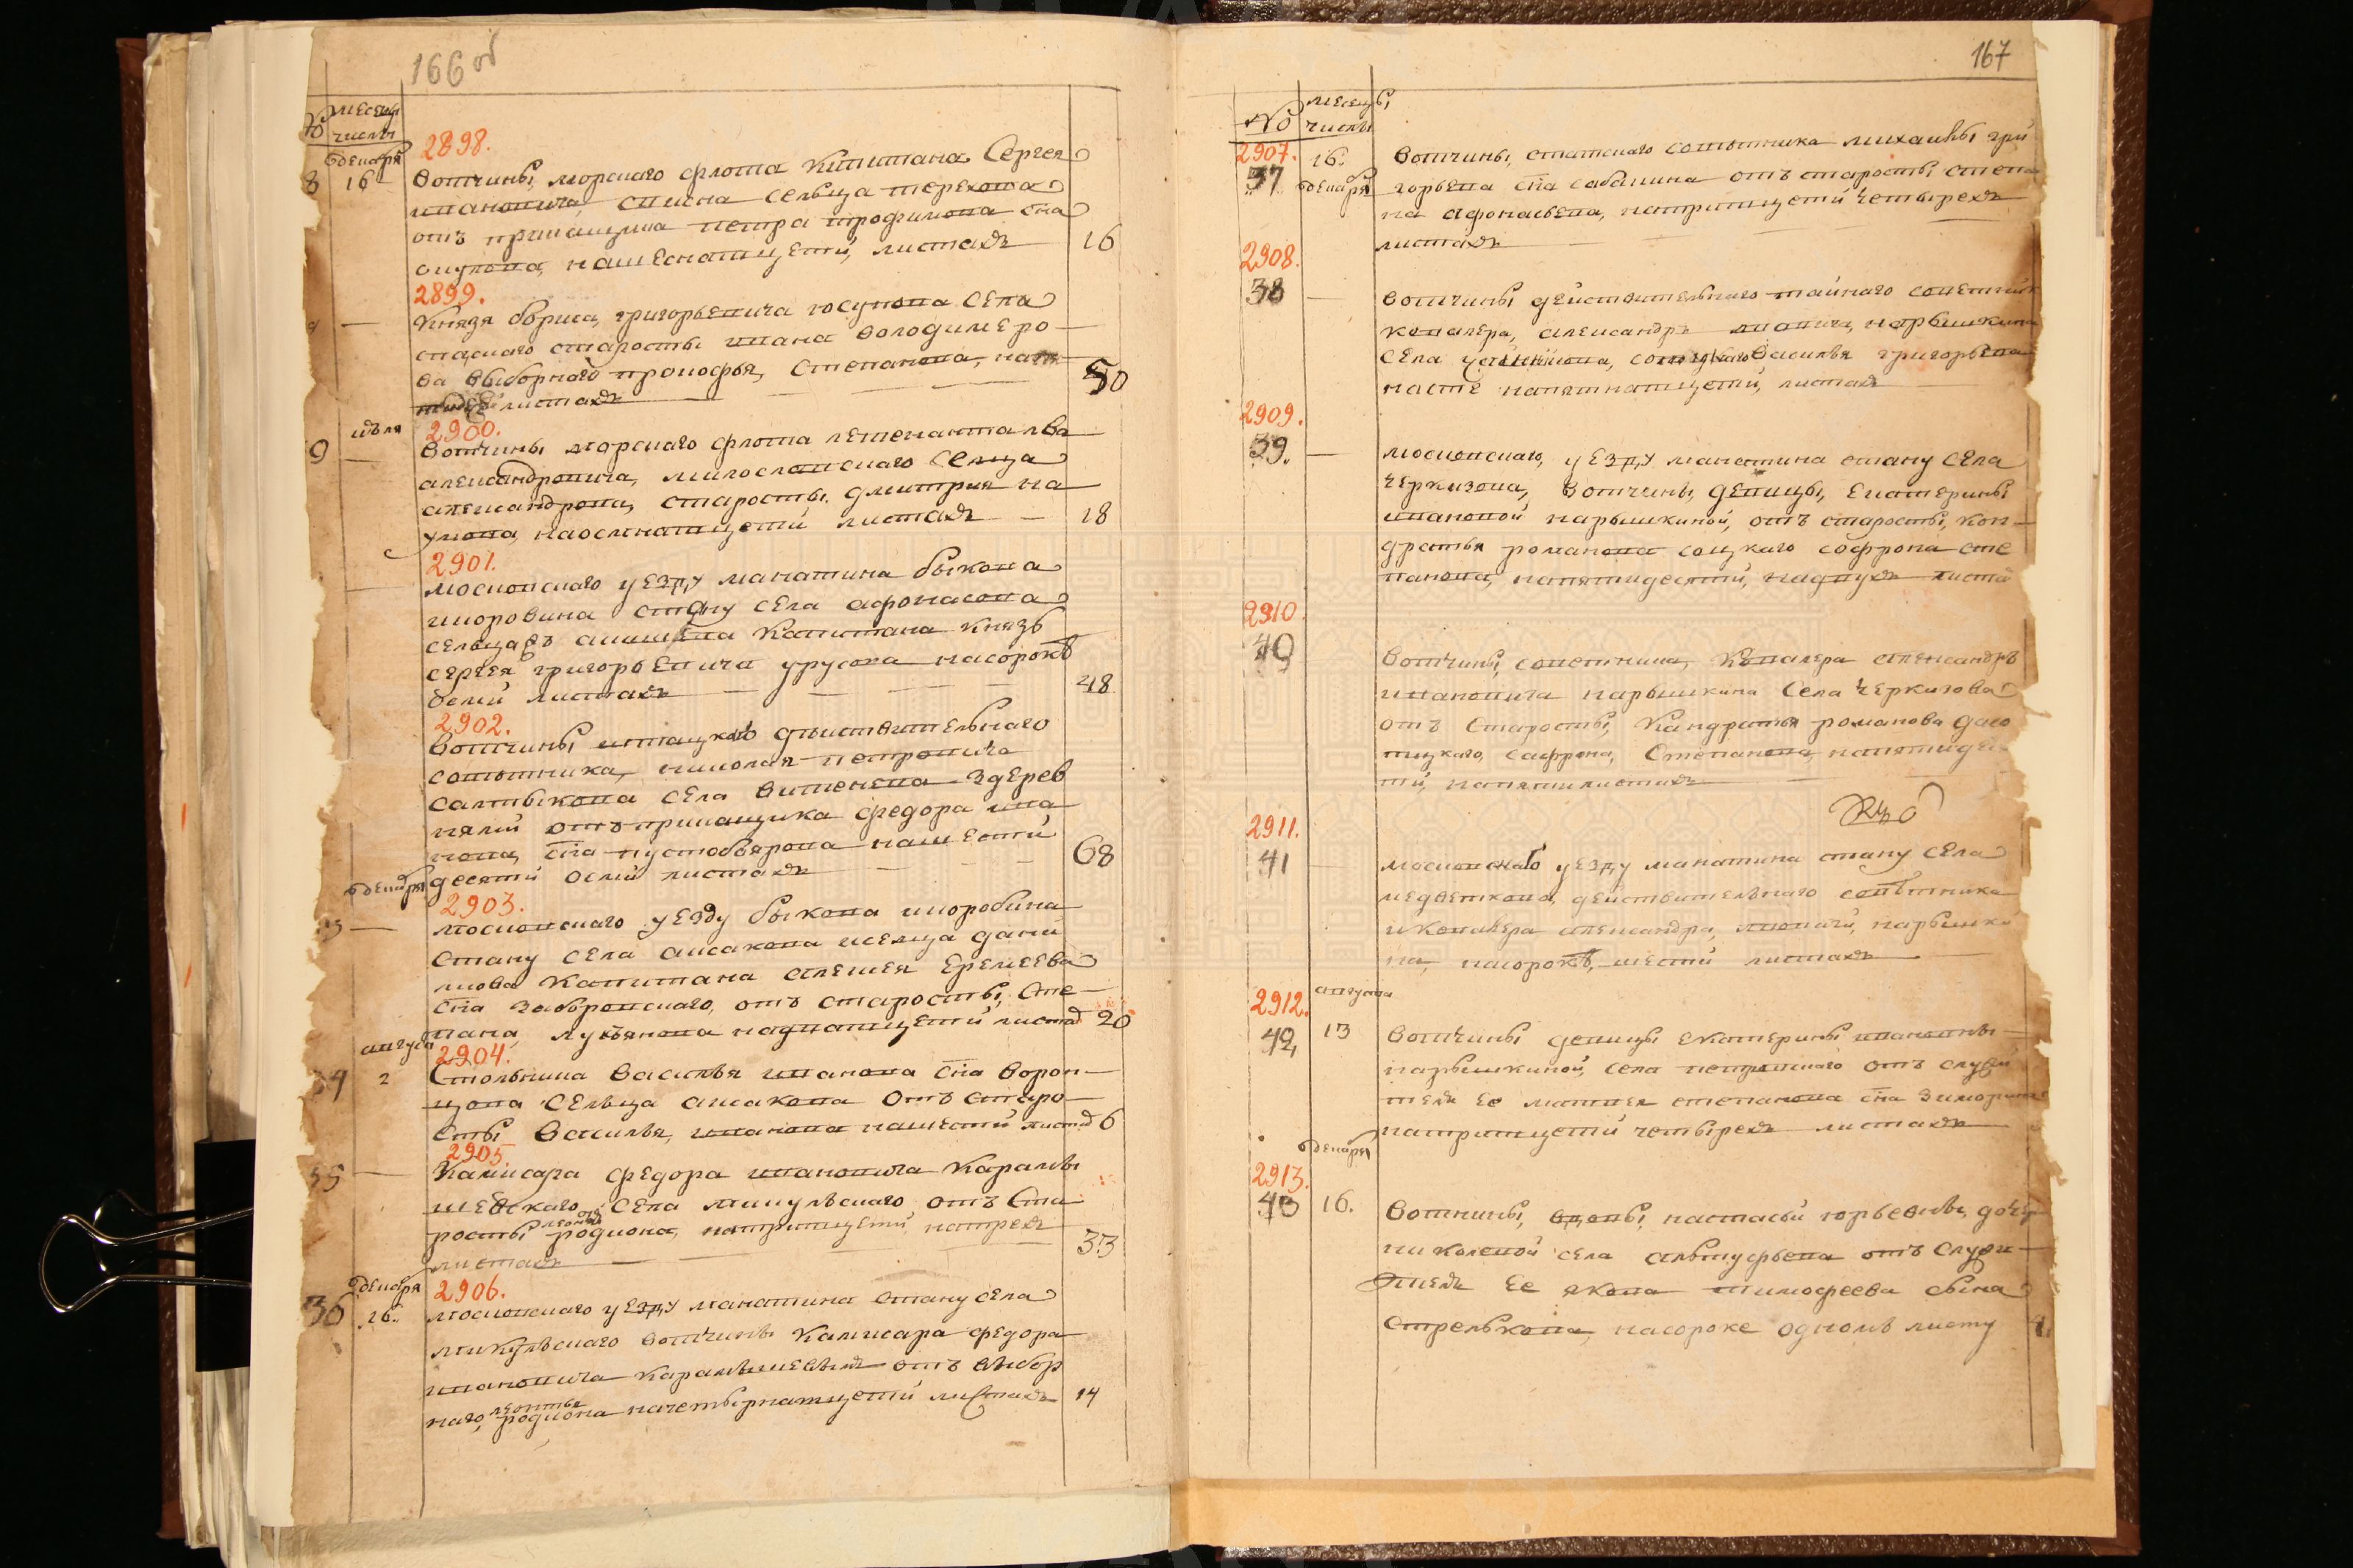 166 об
месецы
числы
декабря
2898.
8 16 вотчины морскаго флота капитана Сергея
ивановича списка сельца терехова
отъ прикащика петра трофимова сна
на шеснатцети листахъ 16
2899.
Князя бориса григорьевича юсупова села
спаскаго старосты ивана володимеро
ва выборнаго прокофья степанова, на
листахъ 50
июля
2900.
9 — вотчины морскаго флота летенанта лва
александровича, милославскаго сельца
александрова, старосты дмитрия на
умова, на осмнатцети листахъ — 18
2901.
московскаго уезду манатина быкова
и коровина стану села афонасова
сельца капитана князь
сергея григорьевича урусова на сорокѣ
восми листахъ 48
2902.
вотчины штацкаго дѣиствительнаго
совѣтника, николая петровича
салтыкова села витенева з дерев
нями отъ прикащика федора ива
нова, сна пустобоярова на шести
десяти осми листахъ 68
декабря
2903.
московскаго уезду быкова и коробина
стану села аксакова и селца дани
лкова капитана алексея еремеева
сна заборовскаго, отъ старосты, сте—
пана, лукьянова на дватцети листа 20
августа
2904.
34 2 Столника василья иванова сна ворон—
цова сельца аксакова отъ старо—
сты василья, иванова на шести листа 6
2905
35 — камисара федора ивановича карамы
шевскаго села микулскаго отъ ста
росты родиона, на тритцети на трехъ
листахъ 33
декабря
2906.
36 16. московскаго уезду манатина стану села
микулскаго вотчины камисара федора
ивановича карамышева отъ выбор
леонтьева
наго, родиона на четырнатцети листахъ 14
167
№ месецы
числы
2907. 16. вотчины, статскаго совѣтника михаилы гри
37 декабря горьева сна сабакина отъ старосты степа
на афонасьева, на тритцети четырехъ
листахъ
2908.
38 — вотчины действителнаго тайнаго советник
кавалера, александръ лвовича, нарышкина
села василья григорьева
на сте на пятнатцети, листахъ
2909.
39. — московскаго, уезду манатина стану села
черкизова, вотчины, девицы, екатерины
ивановой нарышкиной, отъ старосты, кон—
дратья романова соцкаго софрона сте
панова, на пятидесяти, на двухъ листа
2910
40 вотчины, советника, кавалера александръ
ивановича нарышкина села черкизова
отъ старосты, кандратья романова да со
тцкаго, сафрона, степанова, на пятиде
ти, на пяти листахъ
2911.
41 московскаго уезду манатина стану села
медветкова, действителнаго советника
и кавалера александра, лвовича, нарышки
на, на сорокѣ, шести листахъ
августа
2912.
42 13 вотчины девицы екатерины ивановны
нарышкиной, села петровскаго отъ служи
теля ее матвея степанова сна
на тритцети четырехъ листахъ
декабря
2913.
43 16. вотчины, вдовы, настасьи юрьевны, доче
ри села алтуфьева отъ служи—
теля ее якова тимофеева сына
стрелкова, на сороке одномъ листу 41